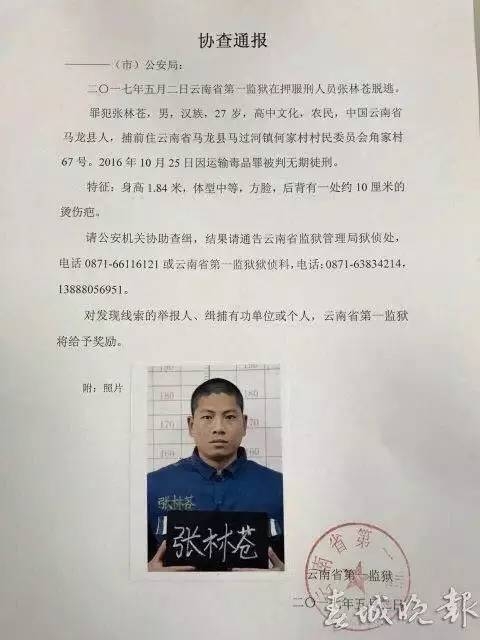 协查通报
————（市）公安局：
二〇一七年五月二日云南省第一监狱在押服刑人员张林苍脱逃。
罪犯张林苍，男，汉族，27 岁，高中文化，农民，中国云南省
马龙县人，捕前住云南省马龙县马过河镇何家村村民委员会角家村
67 号。2016 年 10 月 25 日因运输毒品罪被判无期徒刑。
特征：身高 1.84 米，体型中等，方脸，后背有一处约 10 厘米的
烫伤疤。
请公安机关协助查缉，结果请通告云南省监狱管理局狱侦处，
电话 0871-66116121 或云南省第一监狱狱侦科，电话：0871-63834214，
13888056951。
对发现线索的举报人、缉捕有功单位或个人，云南省第一监狱
将给予奖励。
附：照片
190
180
180
170
170
160
160
张林苍
张林苍
云南省第一监狱
云南省第一监狱
二〇一七年五月二日
春城晚報